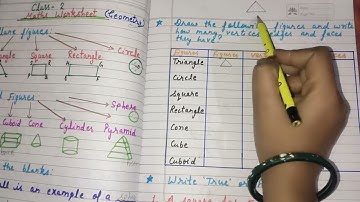 Class - 2
Maths Worksheet (Geometry)
Plane figures:
Circle
Square Rectangle
Figures :
Sphere
Cuboid Cone Cylinder Pyramid
the blanks:
is an example of a
* Draw the following figures and write
how many vertices, edges and faces
they have?
Figures Figures
Triangle
Circle
Square
Rectangle
Cone
Cube
Cuboid
* Write 'True' or